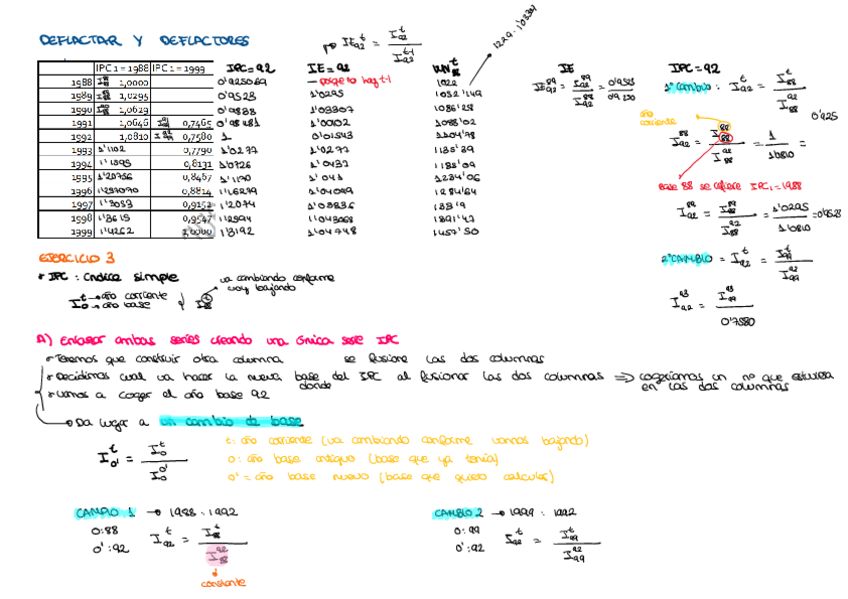 DEFLACTAR Y DEFLACTORES
IE92^t = I92^t / I92^t-1
1229 · 1'03307
IPC1=1988 IPC1=1999 IPC=92 IE=92
1988 I88^88 1,0000 0'925069 — porque no hay t-1 1022
1989 I88^89 1,0295 0'9523 1'0295 1052'149
1990 I88^90 1,0629 0'9833 1'03307 1086'28
1991 1,0646 I99^91 0,7465 0'98481 1'0002 1088'02
1992 1,0810 I99^92 0,7580 1 0'01543 1104'78
1993 1'1102 0,7790 1'0277 1'0277 1135'39
1994 1'1595 0,8131 1'0726 1'0437 1185'09
1995 1'20756 0,8467 1'1170 1'041 1234'06
1996 1'257070 0,8814 1'16279 1'04099 1284'64
1997 1'3053 0,9152 1'2074 1'03836 1333'9
1998 1'3615 0,9547 1'2594 1'043068 1391'43
1999 1'4262 1,0000 1'3192 1'04748 1457'50
IE
IE92^89 = I92^89 / I92^88 = 0'9523 / 0'9250
IPC=92
1º Cambio: I92^t = I88^t / I88^92
0'925
año corriente
I92^88 = I88^88 / I88^92 = 1 / 1'0810 =
Base 88 se refiere IPC1=1988
I92^89 = I88^89 / I88^92 = 1'0295 / 1'0810 = 0'9523
2º CAMBIO = I92^t = I99^t / I99^92
I92^93 = I99^93 / 0'7580
EJERCICIO 3
• IPC: índice simple
va cambiando conforme voy bajando
I0^t → año corriente
→ año base
I88^t
A) Enlazar ambas series creando una única serie IPC
• Tenemos que construir otra columna donde se fusione las dos columnas
• Decidimos cual va hacer la nueva base del IPC al fusionar las dos columnas ⟹ cogeríamos un no que estuviera en las dos columnas
• vamos a coger el año base 92
→ Da lugar a un cambio de base
I0'^t = I0^t / I0^0'
t: año corriente (va cambiando conforme vamos bajando)
0: año base antiguo (base que ya tenía)
0' = año base nuevo (base que quiero calcular)
CAMBIO 1 → 1988 : 1992
0:88
0':92
I92^t = I88^t / I88^92
constante
CAMBIO 2 → 1999 : 1992
0:99
0':92
I92^t = I99^t / I99^92